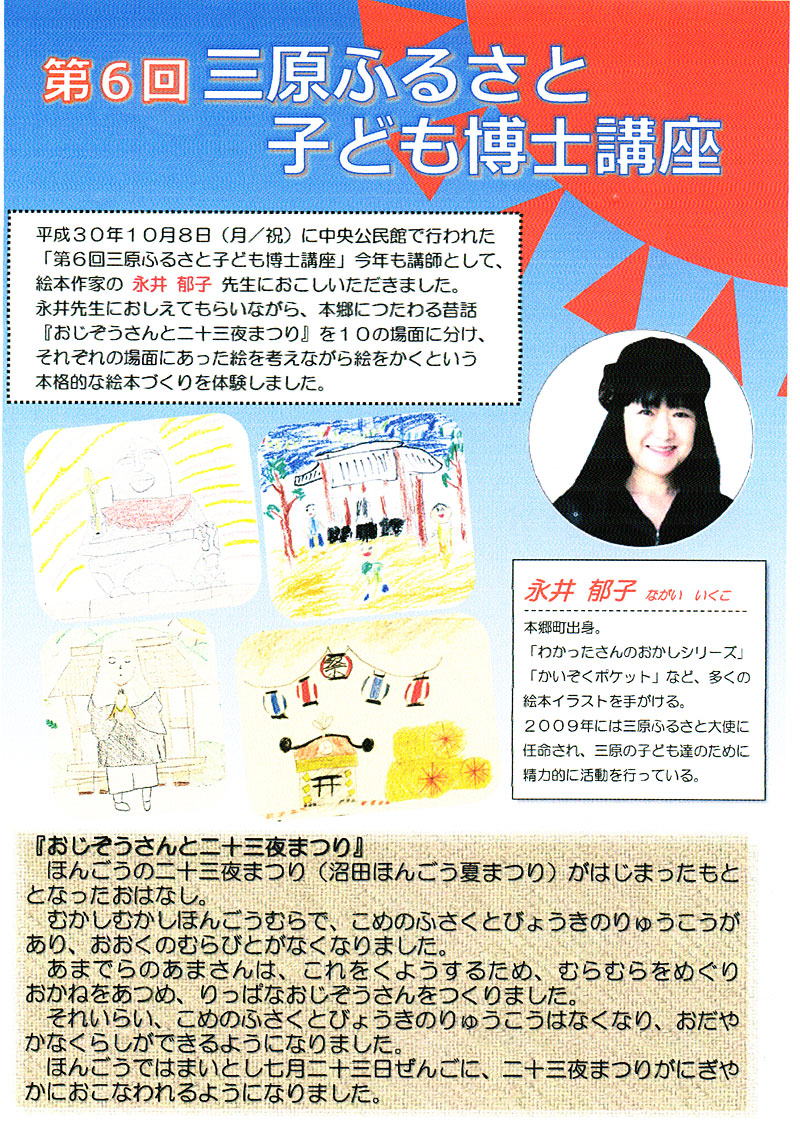 第6回 三原ふるさと
子ども博士講座
平成30年10月8日（月／祝）に中央公民館で行われた
「第6回三原ふるさと子ども博士講座」今年も講師として、
絵本作家の 永井 郁子 先生におこしいただきました。
永井先生におしえてもらいながら、本郷につたわる昔話
『おじぞうさんと二十三夜まつり』を10の場面に分け、
それぞれの場面にあった絵を考えながら絵をかくという
本格的な絵本づくりを体験しました。
祭
永井 郁子 ながい いくこ
本郷町出身。
「わかったさんのおかしシリーズ」
「かいぞくポケット」など、多くの
絵本イラストを手がける。
2009年には三原ふるさと大使に
任命され、三原の子ども達のために
精力的に活動を行っている。
『おじぞうさんと二十三夜まつり』
ほんごうの二十三夜まつり（沼田ほんごう夏まつり）がはじまったもと
となったおはなし。
むかしむかしほんごうむらで、こめのふさくとびょうきのりゅうこうが
あり、おおくのむらびとがなくなりました。
あまでらのあまさんは、これをくようするため、むらむらをめぐり
おかねをあつめ、りっぱなおじぞうさんをつくりました。
それいらい、こめのふさくとびょうきのりゅうこうはなくなり、おだや
かなくらしができるようになりました。
ほんごうではまいとし七月二十三日ぜんごに、二十三夜まつりがにぎや
かにおこなわれるようになりました。